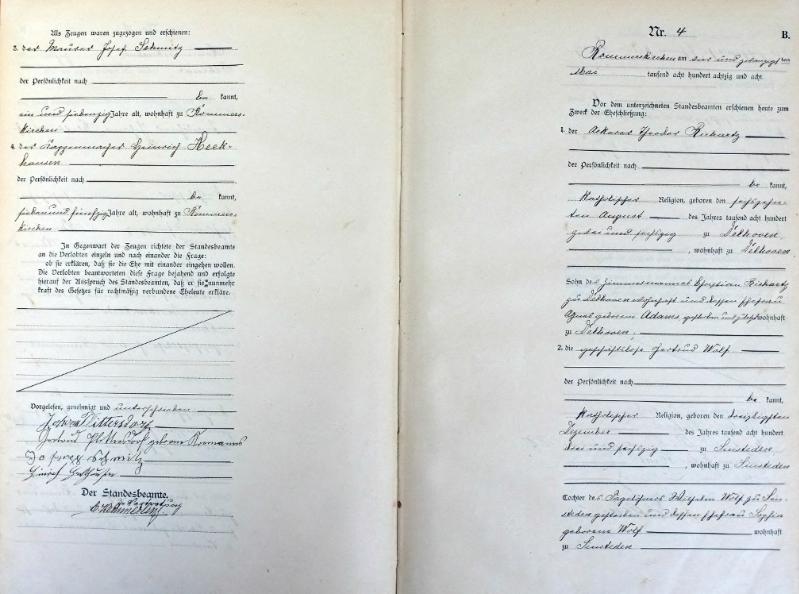 Als Zeugen waren zugezogen und erschienen:
3. der Maurer Josef Schmitz
der Persönlichkeit nach
be kannt,
ein und siebenzig Jahre alt, wohnhaft zu Rommers-
kirchen
4. der Kappenmacher Heinrich Heck-
hausen
der Persönlichkeit nach
be kannt,
sieben und fünfzig Jahre alt, wohnhaft zu Rommers-
kirchen
In Gegenwart der Zeugen richtete der Standesbeamte
an die Verlobten einzeln und nach einander die Frage:
ob sie erklären, daß sie die Ehe mit einander eingehen wollen.
Die Verlobten beantworteten diese Frage bejahend und erfolgte
hierauf der Ausspruch des Standesbeamten, daß er sie nunmehr
kraft des Gesetzes für rechtmäßig verbundene Eheleute erkläre.
Vorgelesen, genehmigt und unterschrieben
Gertrud geborene
Josef Schmitz
Der Standesbeamte.
In Vertretung
Nr. 4
B.
Rommerskirchen am vier und zwanzigsten
Mai tausend acht hundert achtzig und acht.
Vor dem unterzeichneten Standesbeamten erschienen heute zum
Zweck der Eheschließung:
1. der Ackerer Theodor Rickartz
der Persönlichkeit nach
be kannt,
katholischer Religion, geboren den sechszehn-
ten August des Jahres tausend acht hundert
zwei und sechszig zu Delhoven
, wohnhaft zu Delhoven
Sohn des Zimmermanns Christian Rickartz
zu Delhoven wohnhaft und dessen Ehefrau
Agnes geborene Adams gestorben und zuletzt wohnhaft
zu Delhoven.
2. die geschäftslose Gertrud Wolf
der Persönlichkeit nach
be kannt,
katholischer Religion, geboren den dreizigsten
Dezember des Jahres tausend acht hundert
drei und sechszig zu Sinsteden
, wohnhaft zu Sinsteden
Tochter des Tagelöhners Wilhelm Wolf zu Sin-
steden gestorben und dessen Ehefrau Sophia
geborene Wolf wohnhaft
zu Sinsteden